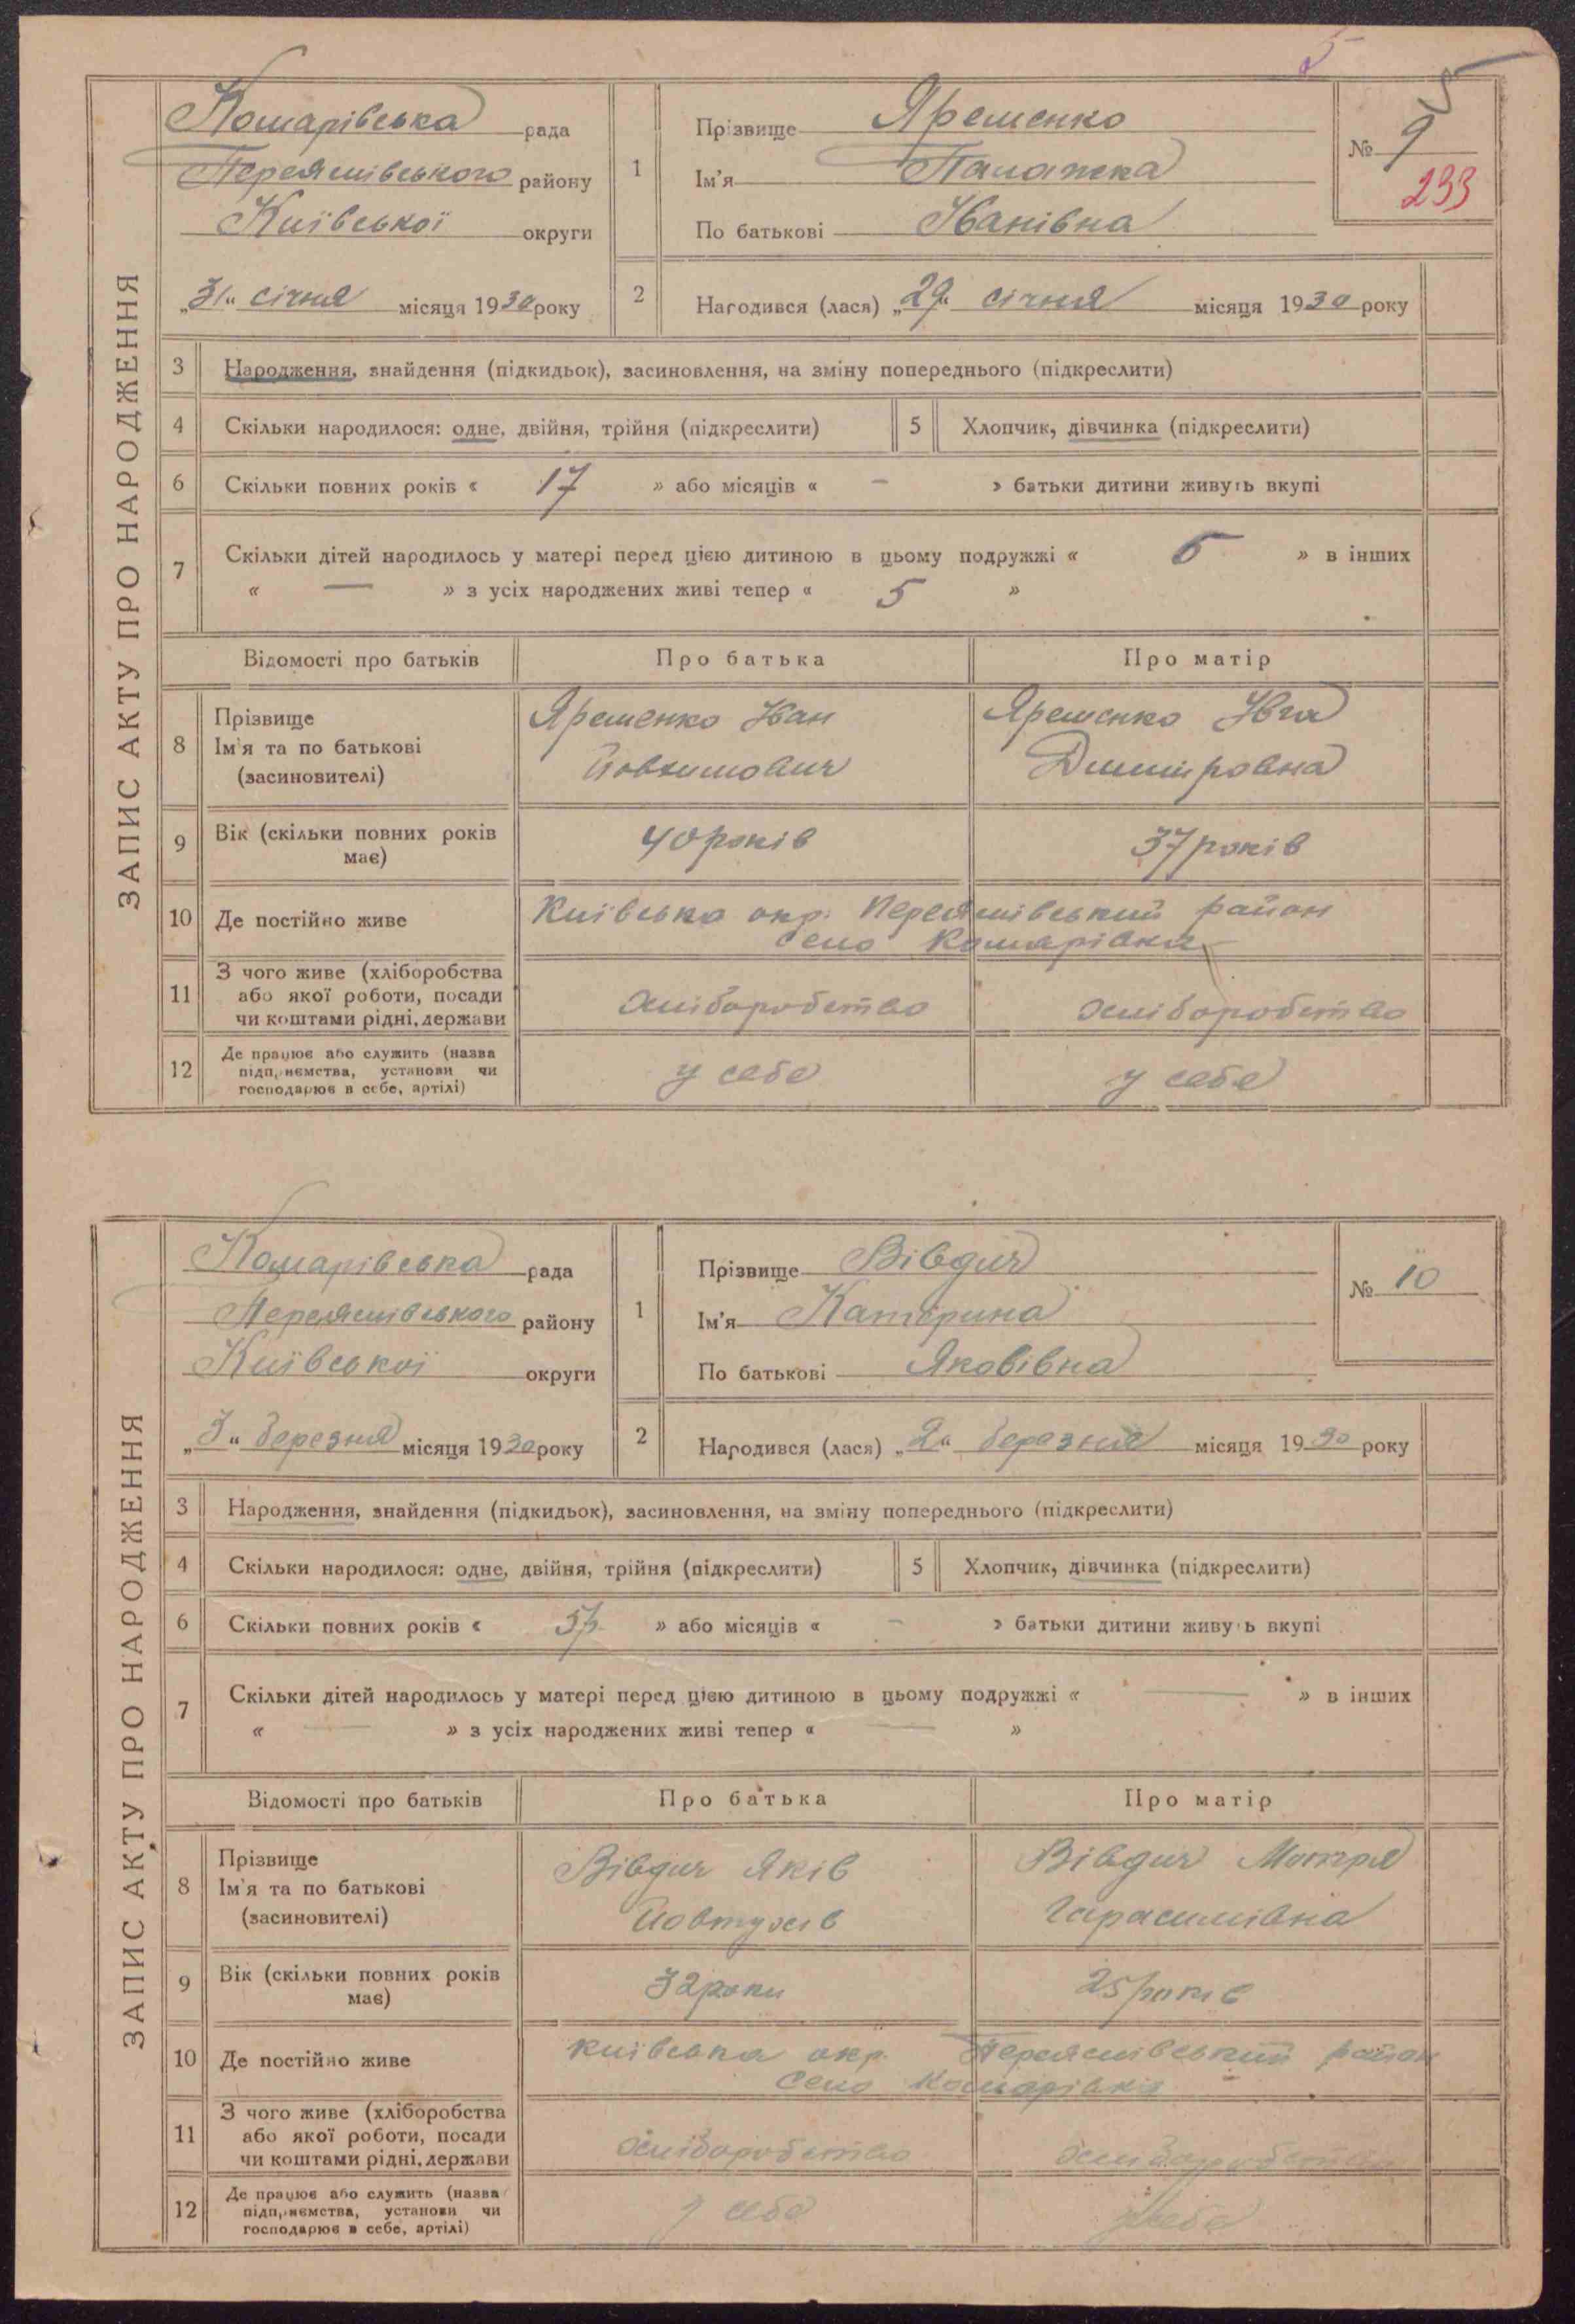 5
5
ЗАПИС АКТУ ПРО НАРОДЖЕННЯ
Комарівська рада
Переяслівського району
Київської округи
„31“ січня місяця 1930 року
1
Прізвище Яременко
Ім'я Палажка
По батькові Іванівна
№ 9
233
2 Народився (лася) „29“ січня місяця 1930 року
3 Народження, знайдення (підкидьок), засиновлення, на зміну попереднього (підкреслити)
4 Скільки народилося: одне, двійня, трійня (підкреслити) 5 Хлопчик, дівчинка (підкреслити)
6 Скільки повних років « 17 » або місяців « – » батьки дитини живуть вкупі
7 Скільки дітей народилось у матері перед цією дитиною в цьому подружжі « 6 » в інших
« — » з усіх народжених живі тепер « 5 »
Відомості про батьків Про батька Про матір
8 Прізвище Ім'я та по батькові (засиновителі)
Яременко Іван
Яременко Івга
Дмитровна
9 Вік (скільки повних років має) 40 років 37 років
10 Де постійно живе Київська окр. Переяслівський район
село Комарівка
11 З чого живе (хліборобства або якої роботи, посади чи коштами рідні, держави хліборобство хліборобство
12 Де працює або служить (назва підприємства, установи чи господарює в себе, артілі) у себе у себе
ЗАПИС АКТУ ПРО НАРОДЖЕННЯ
Комарівська рада
Переяслівського району
Київської округи
„3“ березня місяця 1930 року
1
Прізвище Вівдич
Ім'я Катерина
По батькові Яковівна
№ 10
2 Народився (лася) „2“ березня місяця 1930 року
3 Народження, знайдення (підкидьок), засиновлення, на зміну попереднього (підкреслити)
4 Скільки народилося: одне, двійня, трійня (підкреслити) 5 Хлопчик, дівчинка (підкреслити)
6 Скільки повних років « » або місяців « – » батьки дитини живуть вкупі
7 Скільки дітей народилось у матері перед цією дитиною в цьому подружжі « — » в інших
« — » з усіх народжених живі тепер « — »
Відомості про батьків Про батька Про матір
8 Прізвище Ім'я та по батькові (засиновителі)
Вівдич Яків
Йовтухів
Вівдич Мотря
Гарасимівна
9 Вік (скільки повних років має) 32 роки 25 років
10 Де постійно живе Київська окр. Переяслівський район
село Комарівка
11 З чого живе (хліборобства або якої роботи, посади чи коштами рідні, держави хліборобство хліборобство
12 Де працює або служить (назва підприємства, установи чи господарює в себе, артілі) у себе у себе